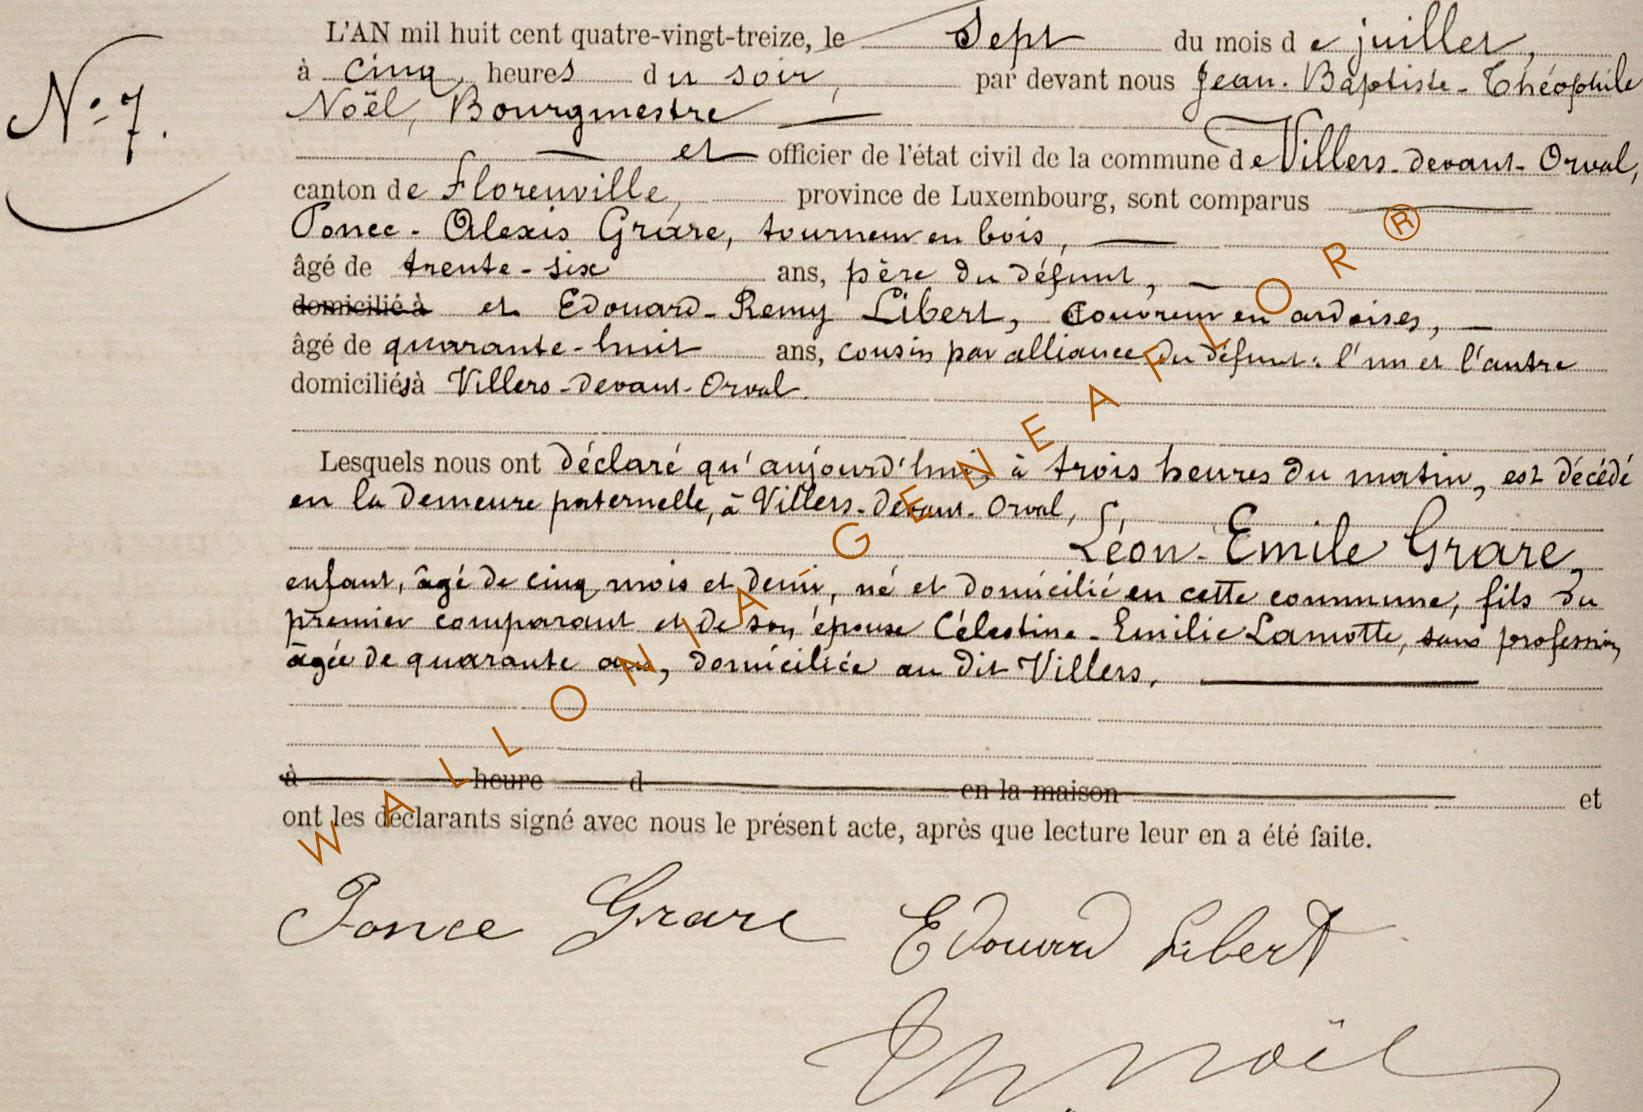 L'AN mil huit cent quatre-vingt-treize, le Sept du mois de juillet,
à cinq heures du soir, par devant nous Jean-Baptiste-Théophile
N° 7.
Noël, Bourgmestre
et officier de l'état civil de la commune de Villers-devant-Orval,
canton de Florenville, province de Luxembourg, sont comparus
Ponce-Alexis Grare, tourneur en bois,
âgé de trente-six ans, père du défunt,
domicilié à et Edouard-Remy Libert, Couvreur en ardoises,
âgé de quarante-huit ans, cousin par alliance du défunt: l'un et l'autre
domiciliés à Villers-devant-Orval.
Lesquels nous ont déclaré qu'aujourd'hui à trois heures du matin, est décédé
en la demeure paternelle, à Villers-devant-Orval,
Léon-Emile Grare,
enfant, âgé de cinq mois et demi, né et domicilié en cette commune, fils du
premier comparant et de son épouse Célestine-Emilie Lamotte, sans profession,
âgée de quarante ans, domiciliée au dit Villers.
à heure d en la maison et
ont les déclarants signé avec nous le présent acte, après que lecture leur en a été faite.
Ponce Grare Edouard Libert
Th Noël
WALLONIA GENEAFLOR®